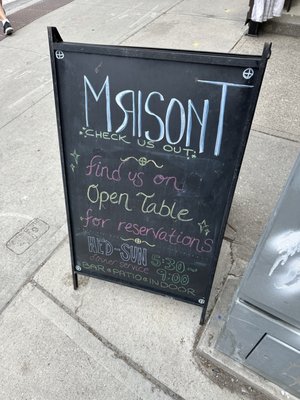 MЯISONT
CHECK US OUT
find us on
Open Table
for reservations
WED-SUN 5:30-
dinner service 9:00
BAR•PATIO•INDOOR